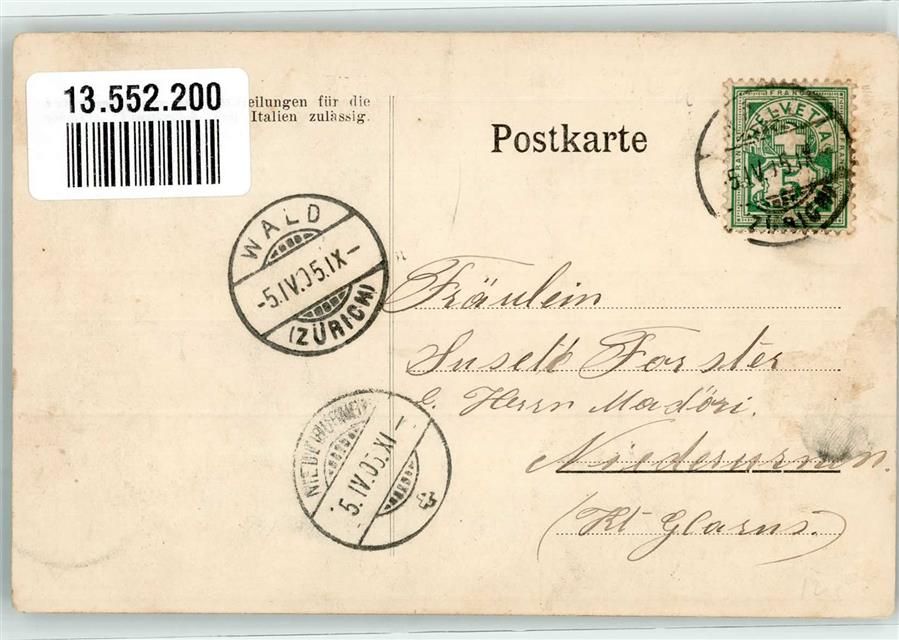 13.552.200
eilungen für die
Italien zulässig.
Postkarte
FRANCO
HELVETIA
5
5.IV.05.IX
ZÜRICH
WALD
-5.IV.05.IX-
(ZÜRICH)
Fräulein
Forster
Herrn Madöri.
Niederurnen.
(Kt Glarus.)
5.IV.05.XI